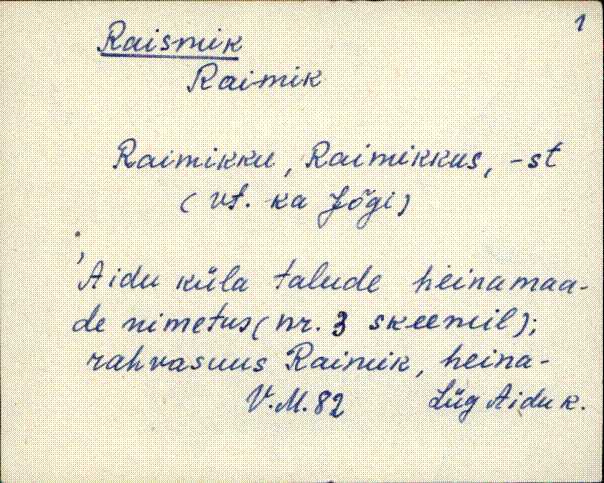 1
Raismik
Raimik
Raimikku, Raimikkus, -st
(vt. ka Jõgi)
'Aidu küla talude heinamaa-
de nimetus (nr. 3 skeemil);
rahvasuus Raimik, heina-
V.M. 82 Lüg Aidu k.